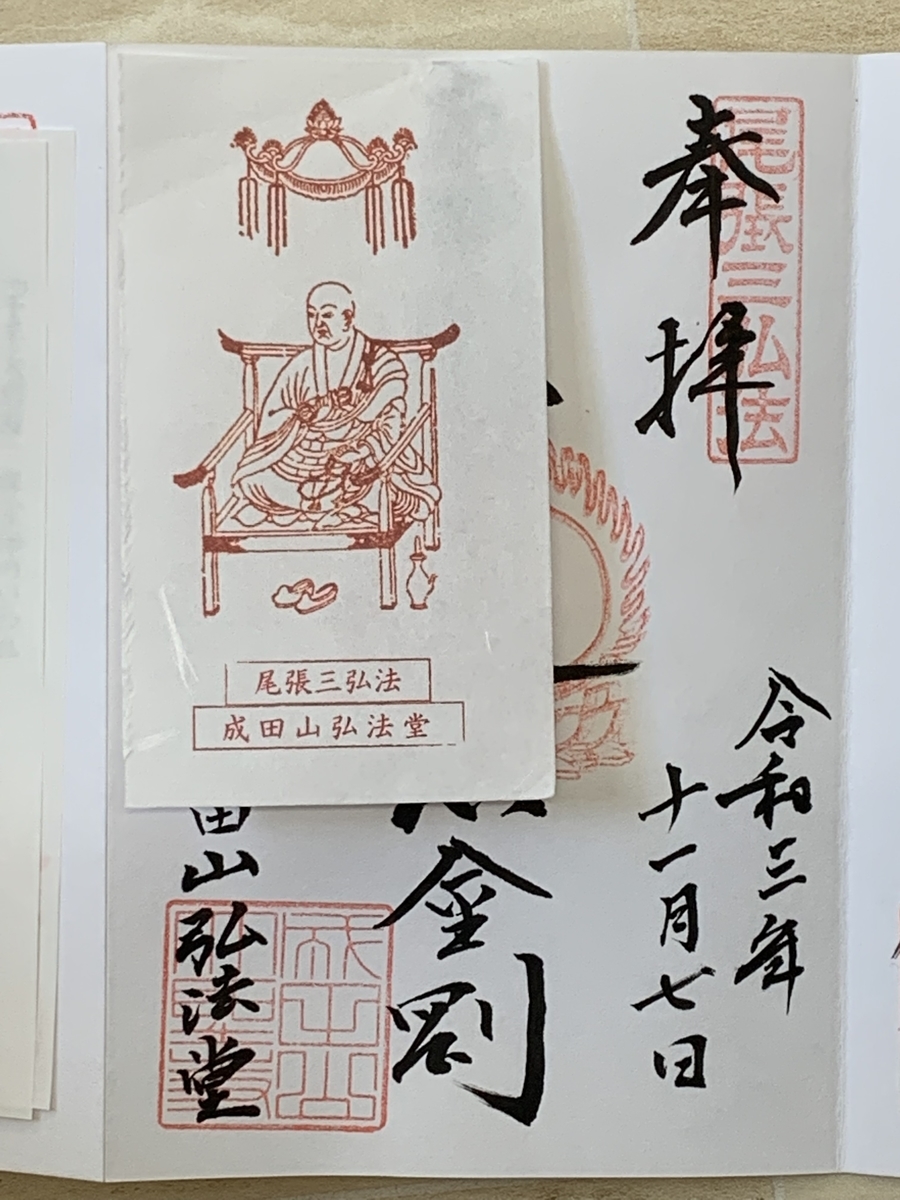 奉拝
尾張三弘法
令和三年
十一月七日
金剛
田山弘法堂
成田山
尾張三弘法
成田山弘法堂